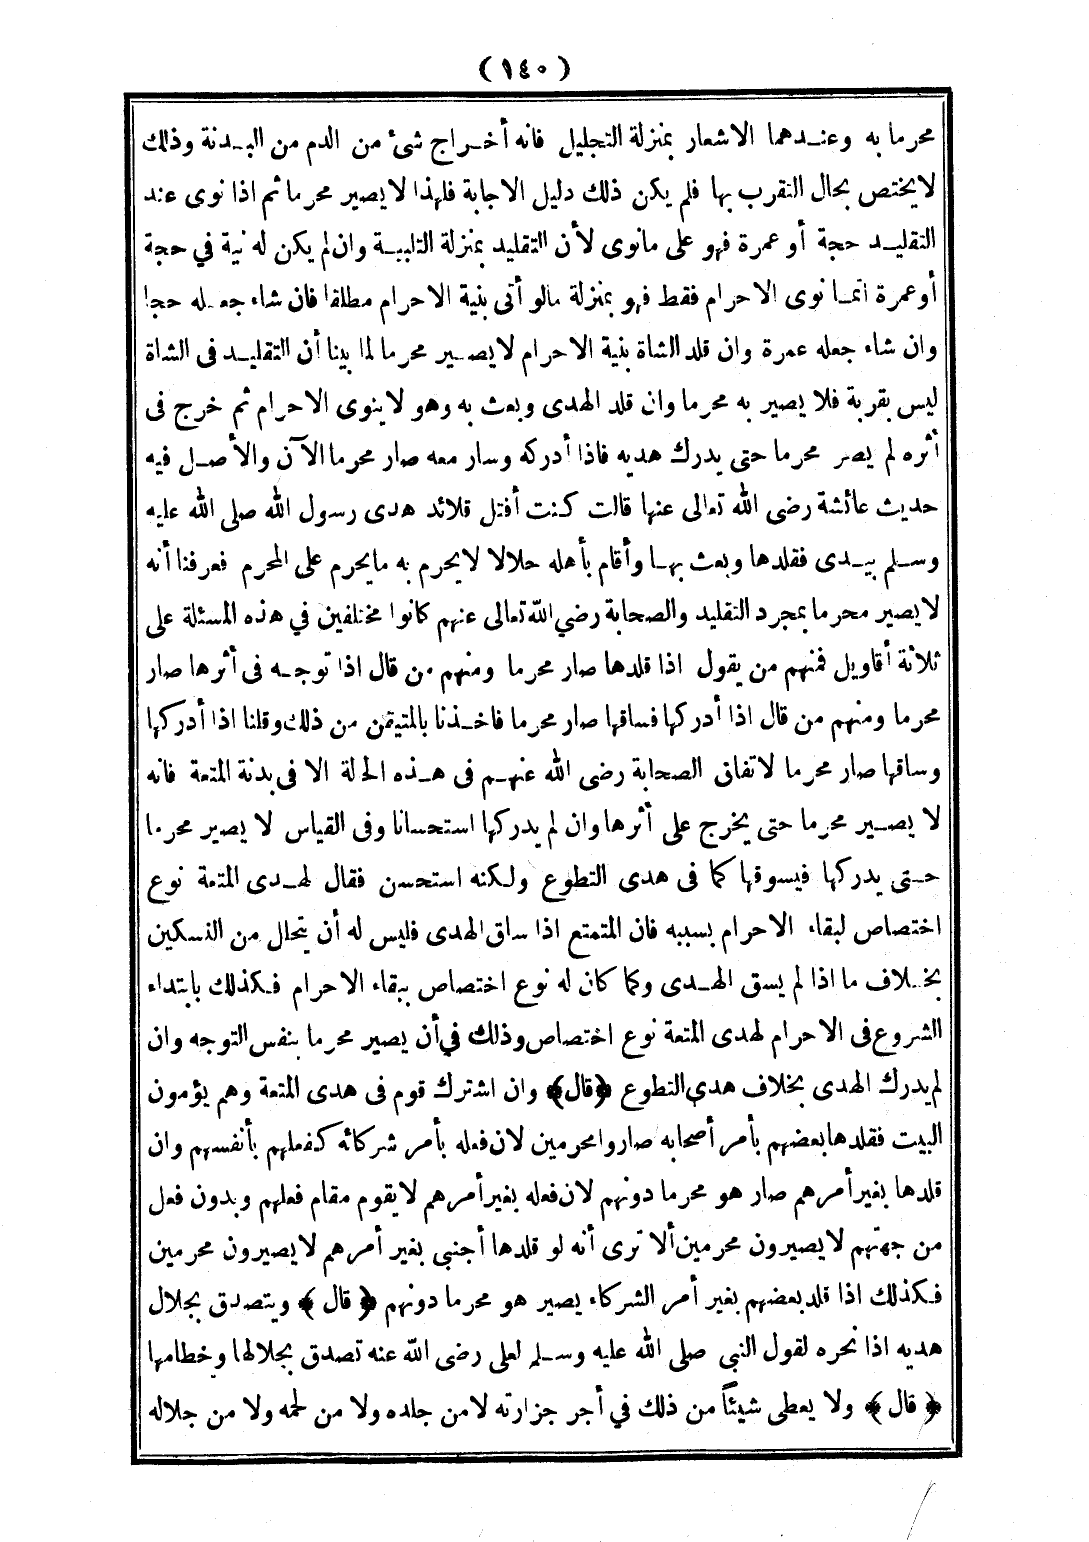 (١٤٠)
محرما به وعندهما الاشعار بمنزلة التجليل فانه أخراج شئ من الدم من البدنة وذلك
لا يختص بحال التقرب بها فلم يكن ذلك دليل الاجابة فلهذا لا يصير محرما ثم اذا نوى عند
التقليد حجة أو عمرة فهو على مانوى لأن التقليد بمنزلة التلبية وان لم يكن له نية في حجة
أو عمرة انما نوى الاحرام فقط فهو بمنزلة مالو أتى بنية الاحرام مطلقا فان شاء جعله حجا
وان شاء جعله عمرة وان قلد الشاة بنية الاحرام لا يصير محرما لما بينا أن التقليد فى الشاة
ليس بقربة فلا يصير به محرما وان قلد الهدى وبعث به وهو لا ينوى الاحرام ثم خرج فى
أثره لم يصر محرما حتى يدرك هديه فاذا أدركه وسار معه صار محرما الآن والأصل فيه
حديث عائشة رضى الله تعالى عنها قالت كنت أفتل قلائد هدى رسول الله صلى الله عليه
وسلم بيدى فقلدها وبعث بها وأقام بأهله حلالا لا يحرم به مايحرم على المحرم فعرفنا أنه
لا يصير محرما بمجرد التقليد والصحابة رضي الله تعالى عنهم كانوا مختلفين في هذه المسئلة على
ثلاثة أقاويل فمنهم من يقول اذا قلدها صار محرما ومنهم من قال اذا توجه فى أثرها صار
محرما ومنهم من قال اذا أدركها فساقها صار محرما فاخذنا بالمتيقن من ذلك وقلنا اذا أدركها
وساقها صار محرما لاتفاق الصحابة رضى الله عنهم فى هذه الحالة الا فى بدنة المتعة فانه
لا يصير محرما حتى يخرج على أثرها وان لم يدركها استحسانا وفى القياس لا يصير محرما
حتى يدركها فيسوقها كما فى هدى التطوع ولكنه استحسن فقال لهدى المتعة نوع
اختصاص لبقاء الاحرام بسببه فان المتمتع اذا ساق الهدى فليس له أن يتحلل من النسكين
بخلاف ما اذا لم يسق الهدى وكما كان له نوع اختصاص ببقاء الاحرام فكذلك بابتداء
الشروع فى الاحرام لهدى المتعة نوع اختصاص وذلك في أن يصير محرما بنفس التوجه وان
لم يدرك الهدى بخلاف هدى التطوع ﴿قال﴾ وان اشترك قوم فى هدى المتعة وهم يؤمون
البيت فقلدها بعضهم بأمر أصحابه صاروا محرمين لان فعله بأمر شركائه كفعلهم بأنفسهم وان
قلدها بغير أمرهم صار هو محرما دونهم لان فعله بغير أمرهم لا يقوم مقام فعلهم وبدون فعل
من جهتهم لا يصيرون محرمين ألا ترى أنه لو قلدها أجنبي بغير أمرهم لا يصيرون محرمين
فكذلك اذا قلد بعضهم بغير أمر الشركاء يصير هو محرما دونهم ﴿ قال ﴾ ويتصدق بجلال
هديه اذا نحره لقول النبي صلى الله عليه وسلم لعلى رضى الله عنه تصدق بجلالها وخطامها
﴿ قال ﴾ ولا يعطى شيئاً من ذلك في أجر جزارته لا من جلده ولا من لحمه ولا من جلاله